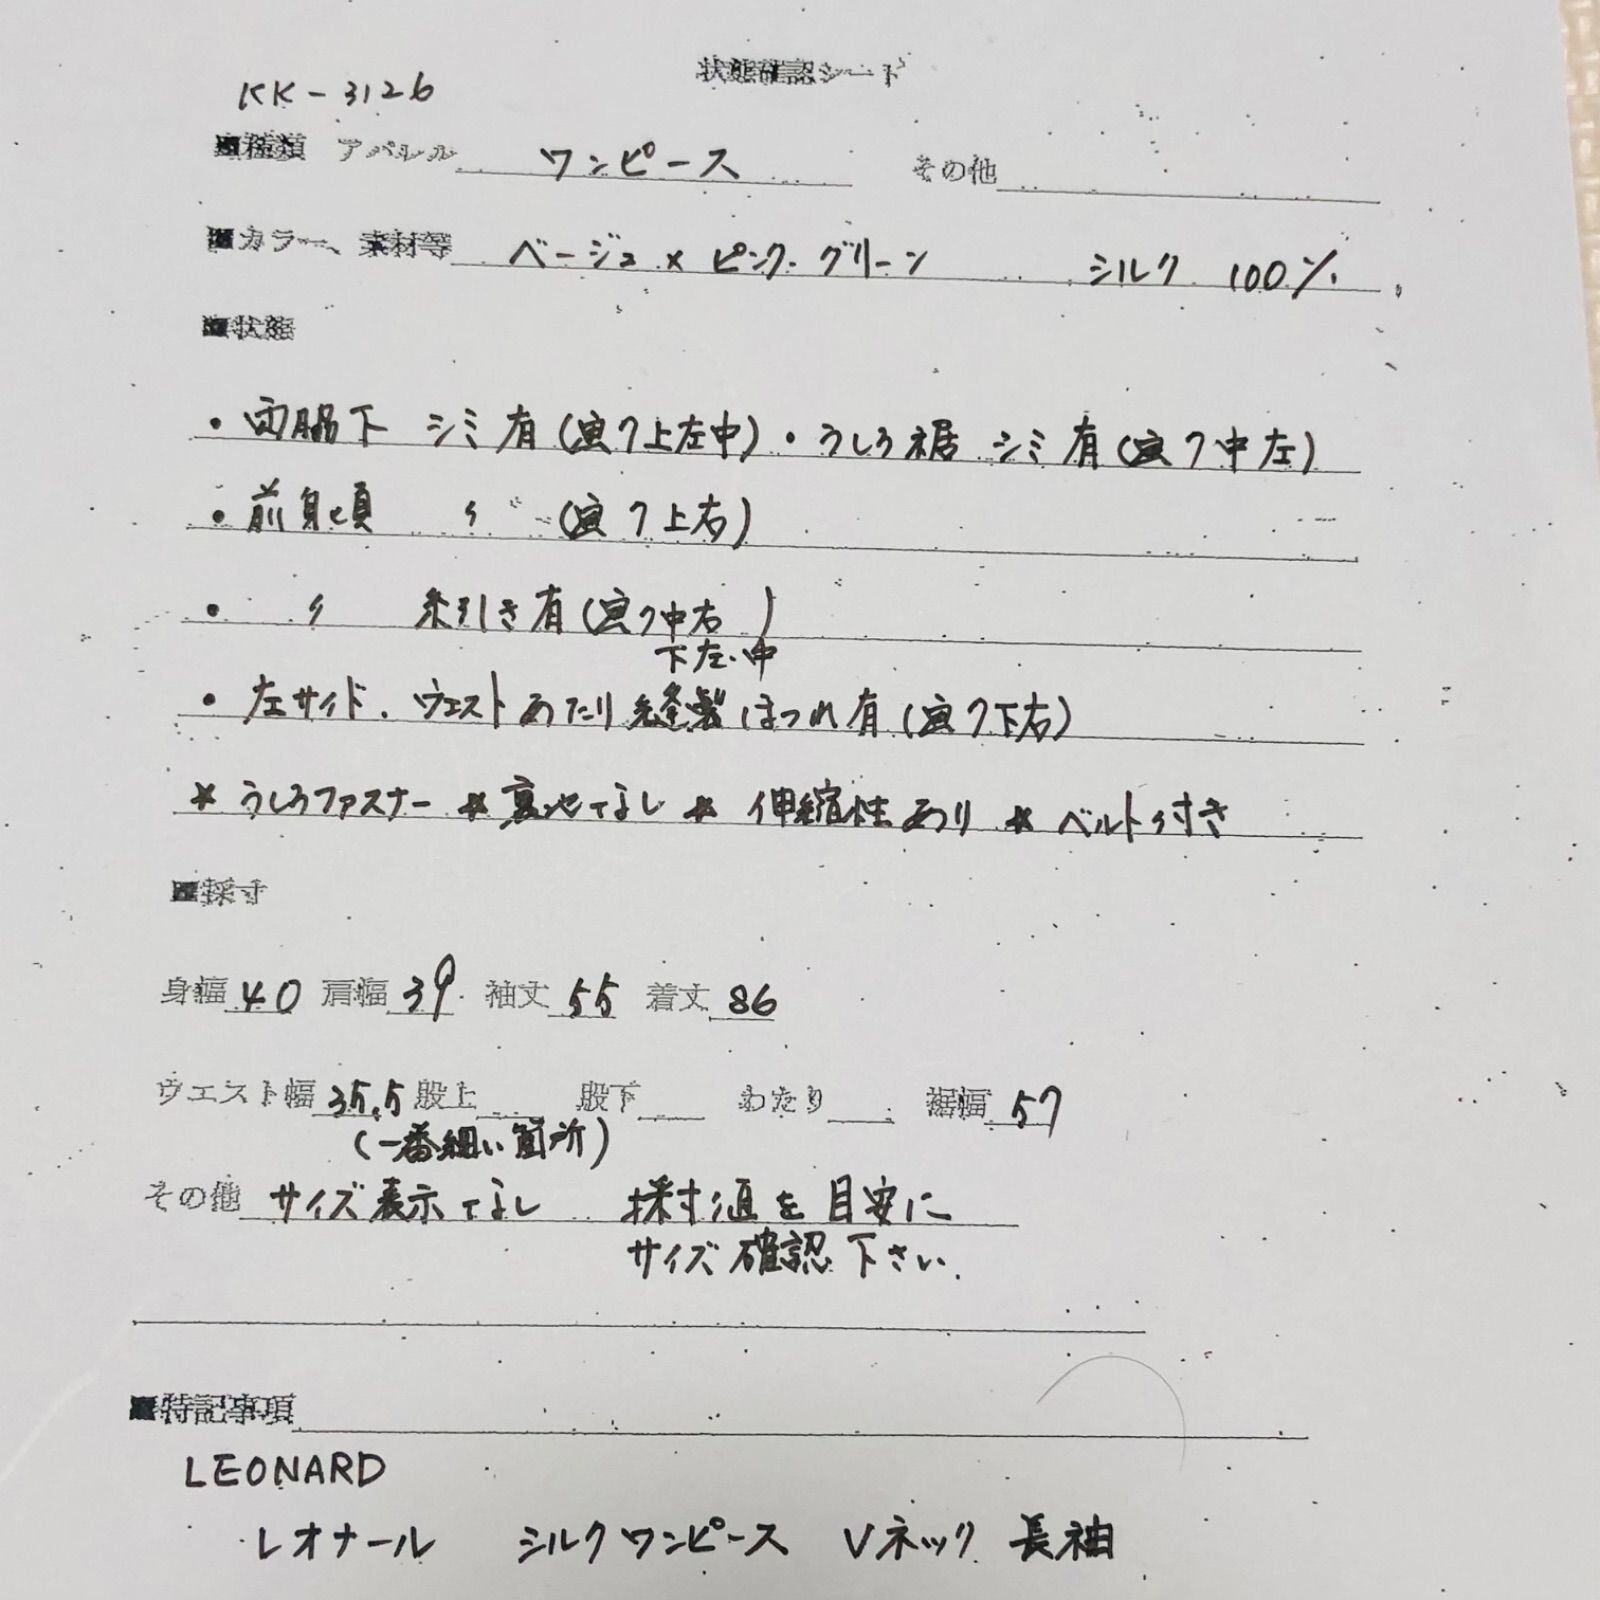 状態確認シート
KK-3126
■種類 アパレル ワンピース その他
■カラー、素材等 ベージュ×ピンク・グリーン シルク 100%
■状態
・両脇下 シミ有(画7上左中)・うしろ裾 シミ有(画7中左)
・前身頃 〃 (画7上右)
・ 〃 糸引き有(画7中右
下左・中)
・左サイド、ウエストあたり縫製ほつれ有(画7下右)
* うしろファスナー * 裏地なし * 伸縮性あり * ベルト付き
■採寸
身幅 40 肩幅 39 袖丈 55 着丈 86
ウエスト幅 35.5 股上 股下 わたり 裾幅 57
(一番細い箇所)
その他 サイズ表示なし 採寸値を目安に
サイズ確認下さい.
■特記事項
LEONARD
レオナール シルクワンピース Vネック 長袖